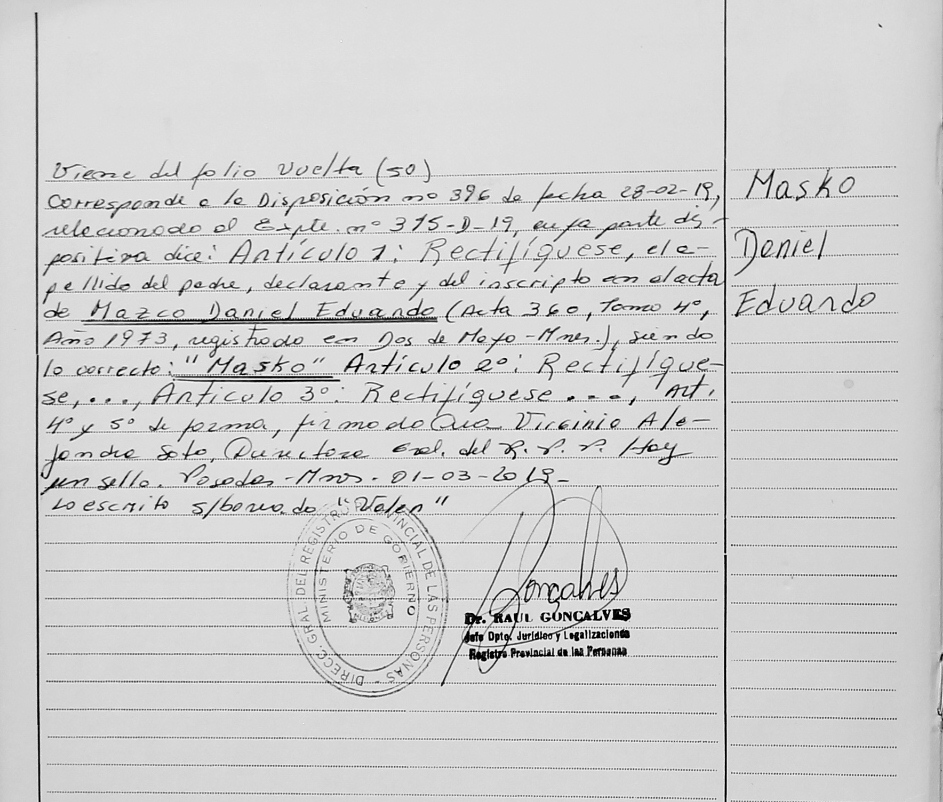 Viene del folio Vuelta (50)
Corresponde a la Disposición nº 396 de fecha 28-02-19,
relacionado al Expte. nº 375-D-19, en su parte dis-
positiva dice: Artículo 1: Rectifíquese, el a-
pellido del padre, declarante y del inscripto en el acta
de Mazco Daniel Eduardo (Acta 360, Tomo 4º,
Año 1973, registrado en Dos de Mayo-Mnes.), siendo
lo correcto: "Masko" Artículo 2º: Rectifíque-
se,..., Artículo 3º: Rectifíquese ..., Art.
4º y 5º de forma, firmado Virginia Ale-
jandra Soto, Directora Gral. del R. P. P. Hay
un sello. Posadas-Mnes. 01-03-2019-
Lo escrito s/borrado "Valen"
Masko
Daniel
Eduardo
DIRECC. GRAL. DEL REGISTRO PROVINCIAL DE LAS PERSONAS
MINISTERIO DE GOBIERNO
Goncalves
Dr. RAUL GONCALVES
Jefe Dpto. Jurídico y Legalizaciones
Registro Provincial de las Personas